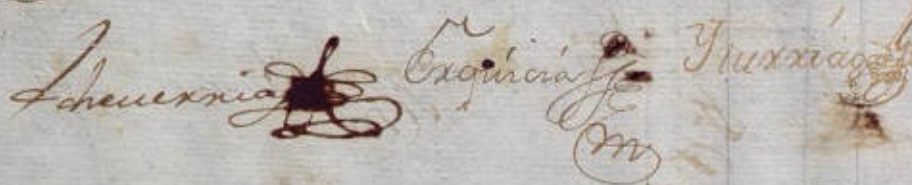 Echeuerria Erquicia Yturriaga